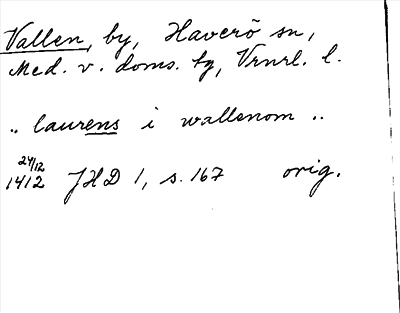 Vallen, by, Haverö sn,
Med. v. doms. tg, Vrnrl. l.
.. laurens i wallenom ..
24/12
1412 JHD 1, s. 167 orig.